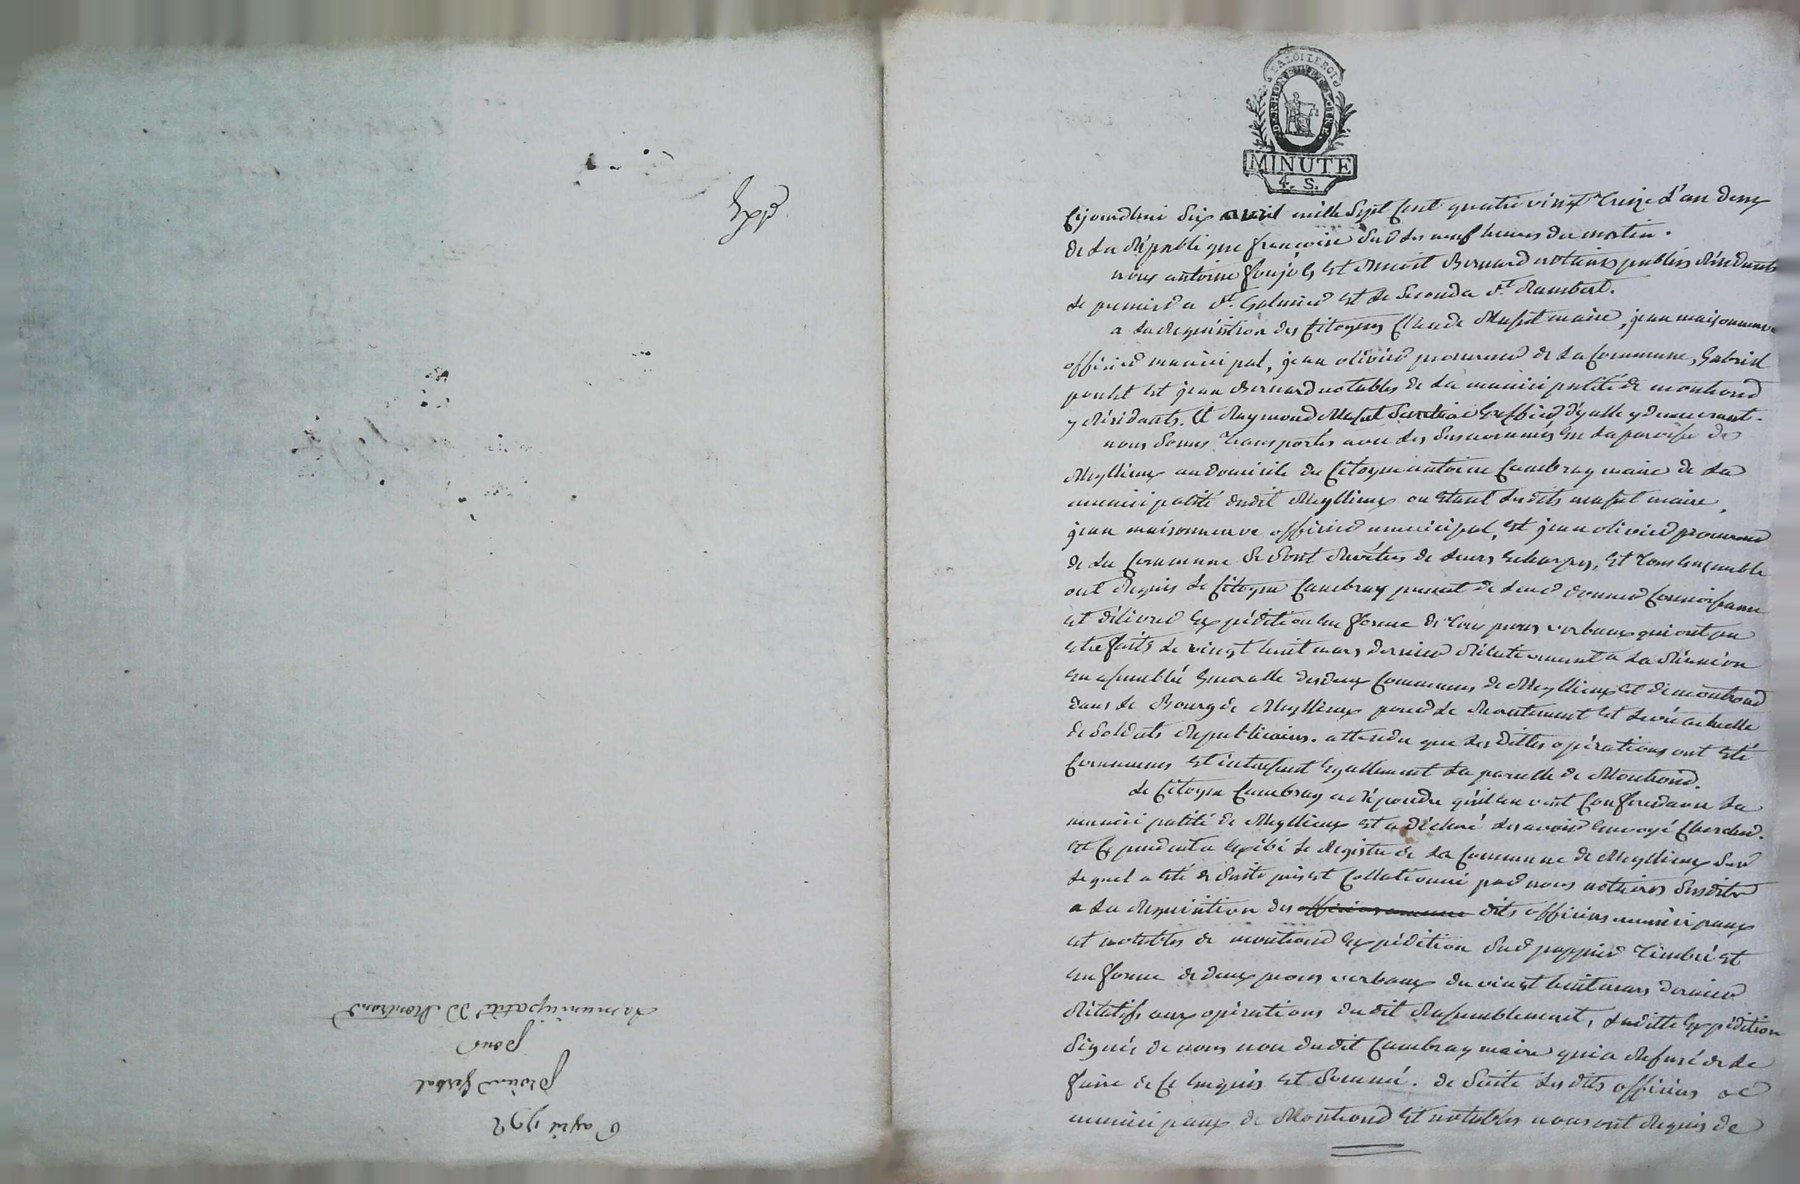 Exp
LA LOI LE ROI
D. RHONE ET LOIRE
MINUTE
4. S.
Cejourdhui Six avril mille Sept Cent quatre vingt treize L'an deux
de La République françoise Sur Les neuf heures du matin.
nous antoine et Benoit Bernard notaires publics Résidants
Le premier a St. Galmier et Le Second a St. Rambert.
a La Requisition des Citoyens Claude Massot maire, jean maisonneuve
officier municipal, jean olivier procureur de La Commune, Gabriel
et jean Bernard notables de La municipalité de montrond
y Résidants. Et Raymond Massot Secretaire Greffier d'y celle y demeurant.
nous Somes transportés avec Les Susnommés En La paroisse de
Meyllieux au domicile du Citoyen antoine Cambray maire de La
municipalité dudit Meyllieux ou étant Lesdits massot maire,
jean maisonneuve officier municipal, et jean olivier procureur
de La Commune Se Sont Revêtus de Leurs Echarpes, Et tous Ensemble
ont Requis Le Citoyen Cambray present de Leur donner Connoissance
et délivrer Expédition En forme de tous procès verbaux qui ont pu
etre faits Le vingt huit mars dernier Relativement a La Réunion
En assemblée Generalle des deux Communes de Meyllieux et de montrond
dans Le Bourg de Meyllieux pour Le Recrutement et Levée actuelle
de Soldats Republicains. attendu que Les dittes opérations ont Eté
Communes Et intéressent Egallement La paroisse de Montrond.
Le Citoyen Cambray a Répondu qu'il en veut Conférer avec La
municipalité de Meyllieux et a déclaré Les avoir Envoyé Chercher.
Et Cependant a Exibé Le Registre de La Commune de Meyllieux Sur
Lequel a Eté de Suite pris et Collationné par nous notaires Susdits
a La Requisition des dits officiers municipaux
et notables de montrond Expédition Sur pappier timbré et
En forme de deux procès verbaux du vingt huit mars dernier
Rélatifs aux opérations dudit Rassemblement, Ladite Expédition
Signée de nous non dudit Cambray maire qui a Refusé de Le
faire de Ce Enquis Et Sommé. de Suite Les dits officiers
municipaux de Montrond Et notables nous ont Requis de
6 avril 1793
procès Verbal
pour
La municipalité de Montrond